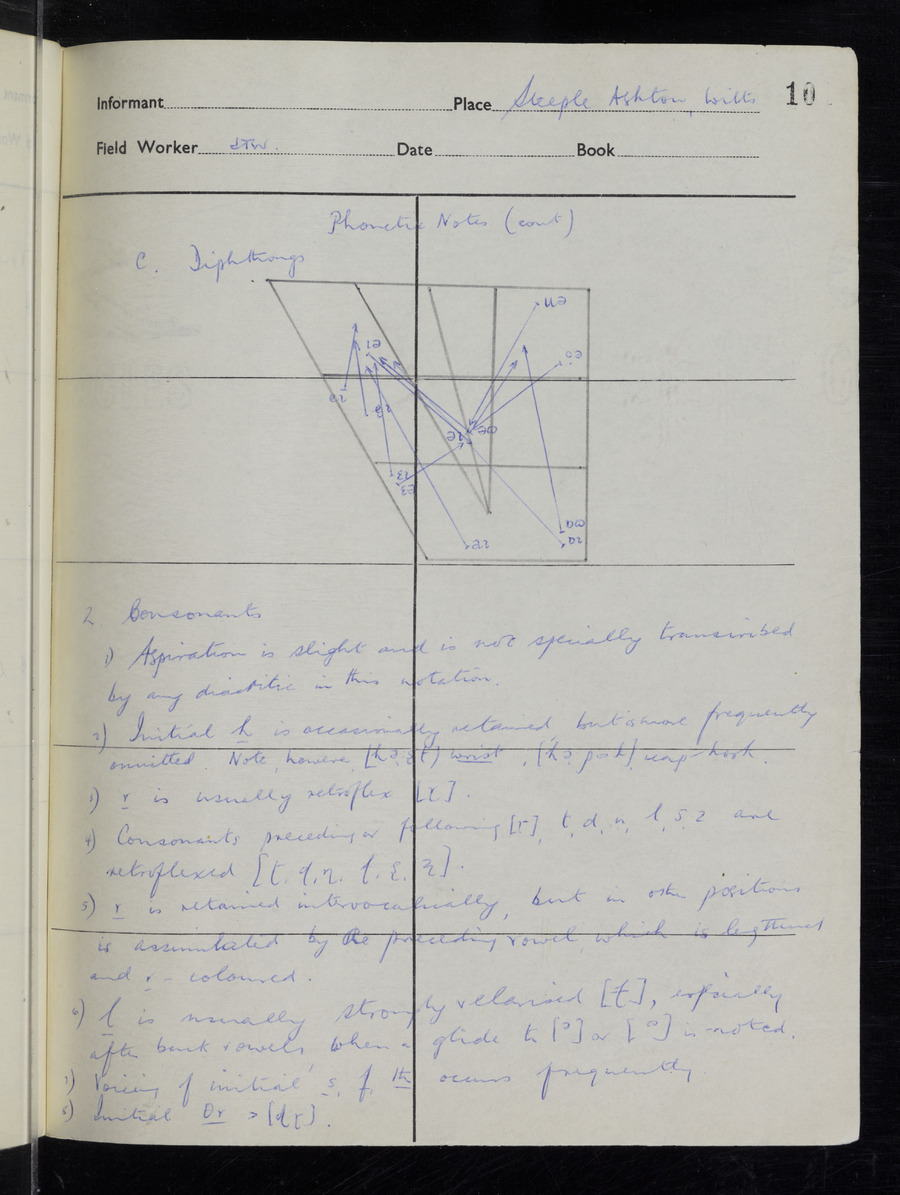 Informant Place Steeple Ashton, Wilts 10
Field Worker JTW. Date Book
Phonetic Notes (cont)
C. Diphthongs
2. Consonants
1) Aspiration is slight and is not specially transcribed
by any diacritic in this notation.
2) Initial h is occasionally retained, but is more frequently
omitted. Note, however, wrist, reap-hook.
3) r is usually retroflex [ɽ].
4) Consonants preceding or following [ɽ], t, d, n, l, s, z are
retroflexed [ʈ, ɖ, ɳ, ɭ, ʂ, ʐ].
5) r is retained intervocalically, but in other positions
is assimilated by the preceding vowel, which is lengthened
and r-coloured.
6) l is usually strongly velarised [ɫ], especially
after back vowels, when a glide to [ᵓ] or [ᵊ] is noted.
7) Voicing of initial s, f, th occurs frequently.
8) Initial θr > [dɽ].